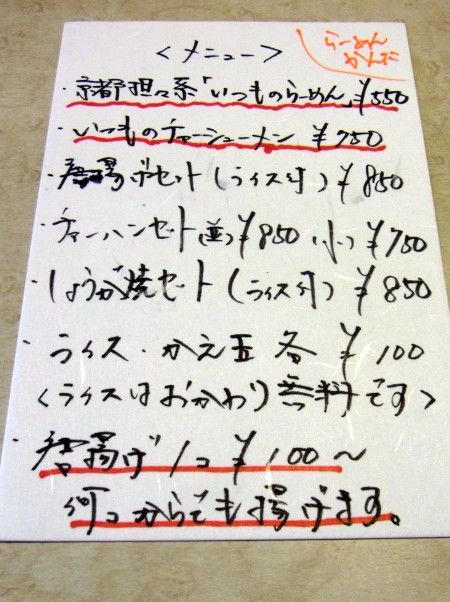 <メニュー>
らーめん
かんだ
・京都担々系「いつものらーめん」¥550
・いつものチャーシューメン ¥750
・唐揚げセット(ライス付)¥850
・チャーハンセット(並)¥850 (小)¥750
・しょうが焼セット(ライス付)¥850
・ライス・かえ玉 各 ¥100
<ライスはおかわり無料です>
・唐揚げ1コ¥100~
何コからでも揚げます。